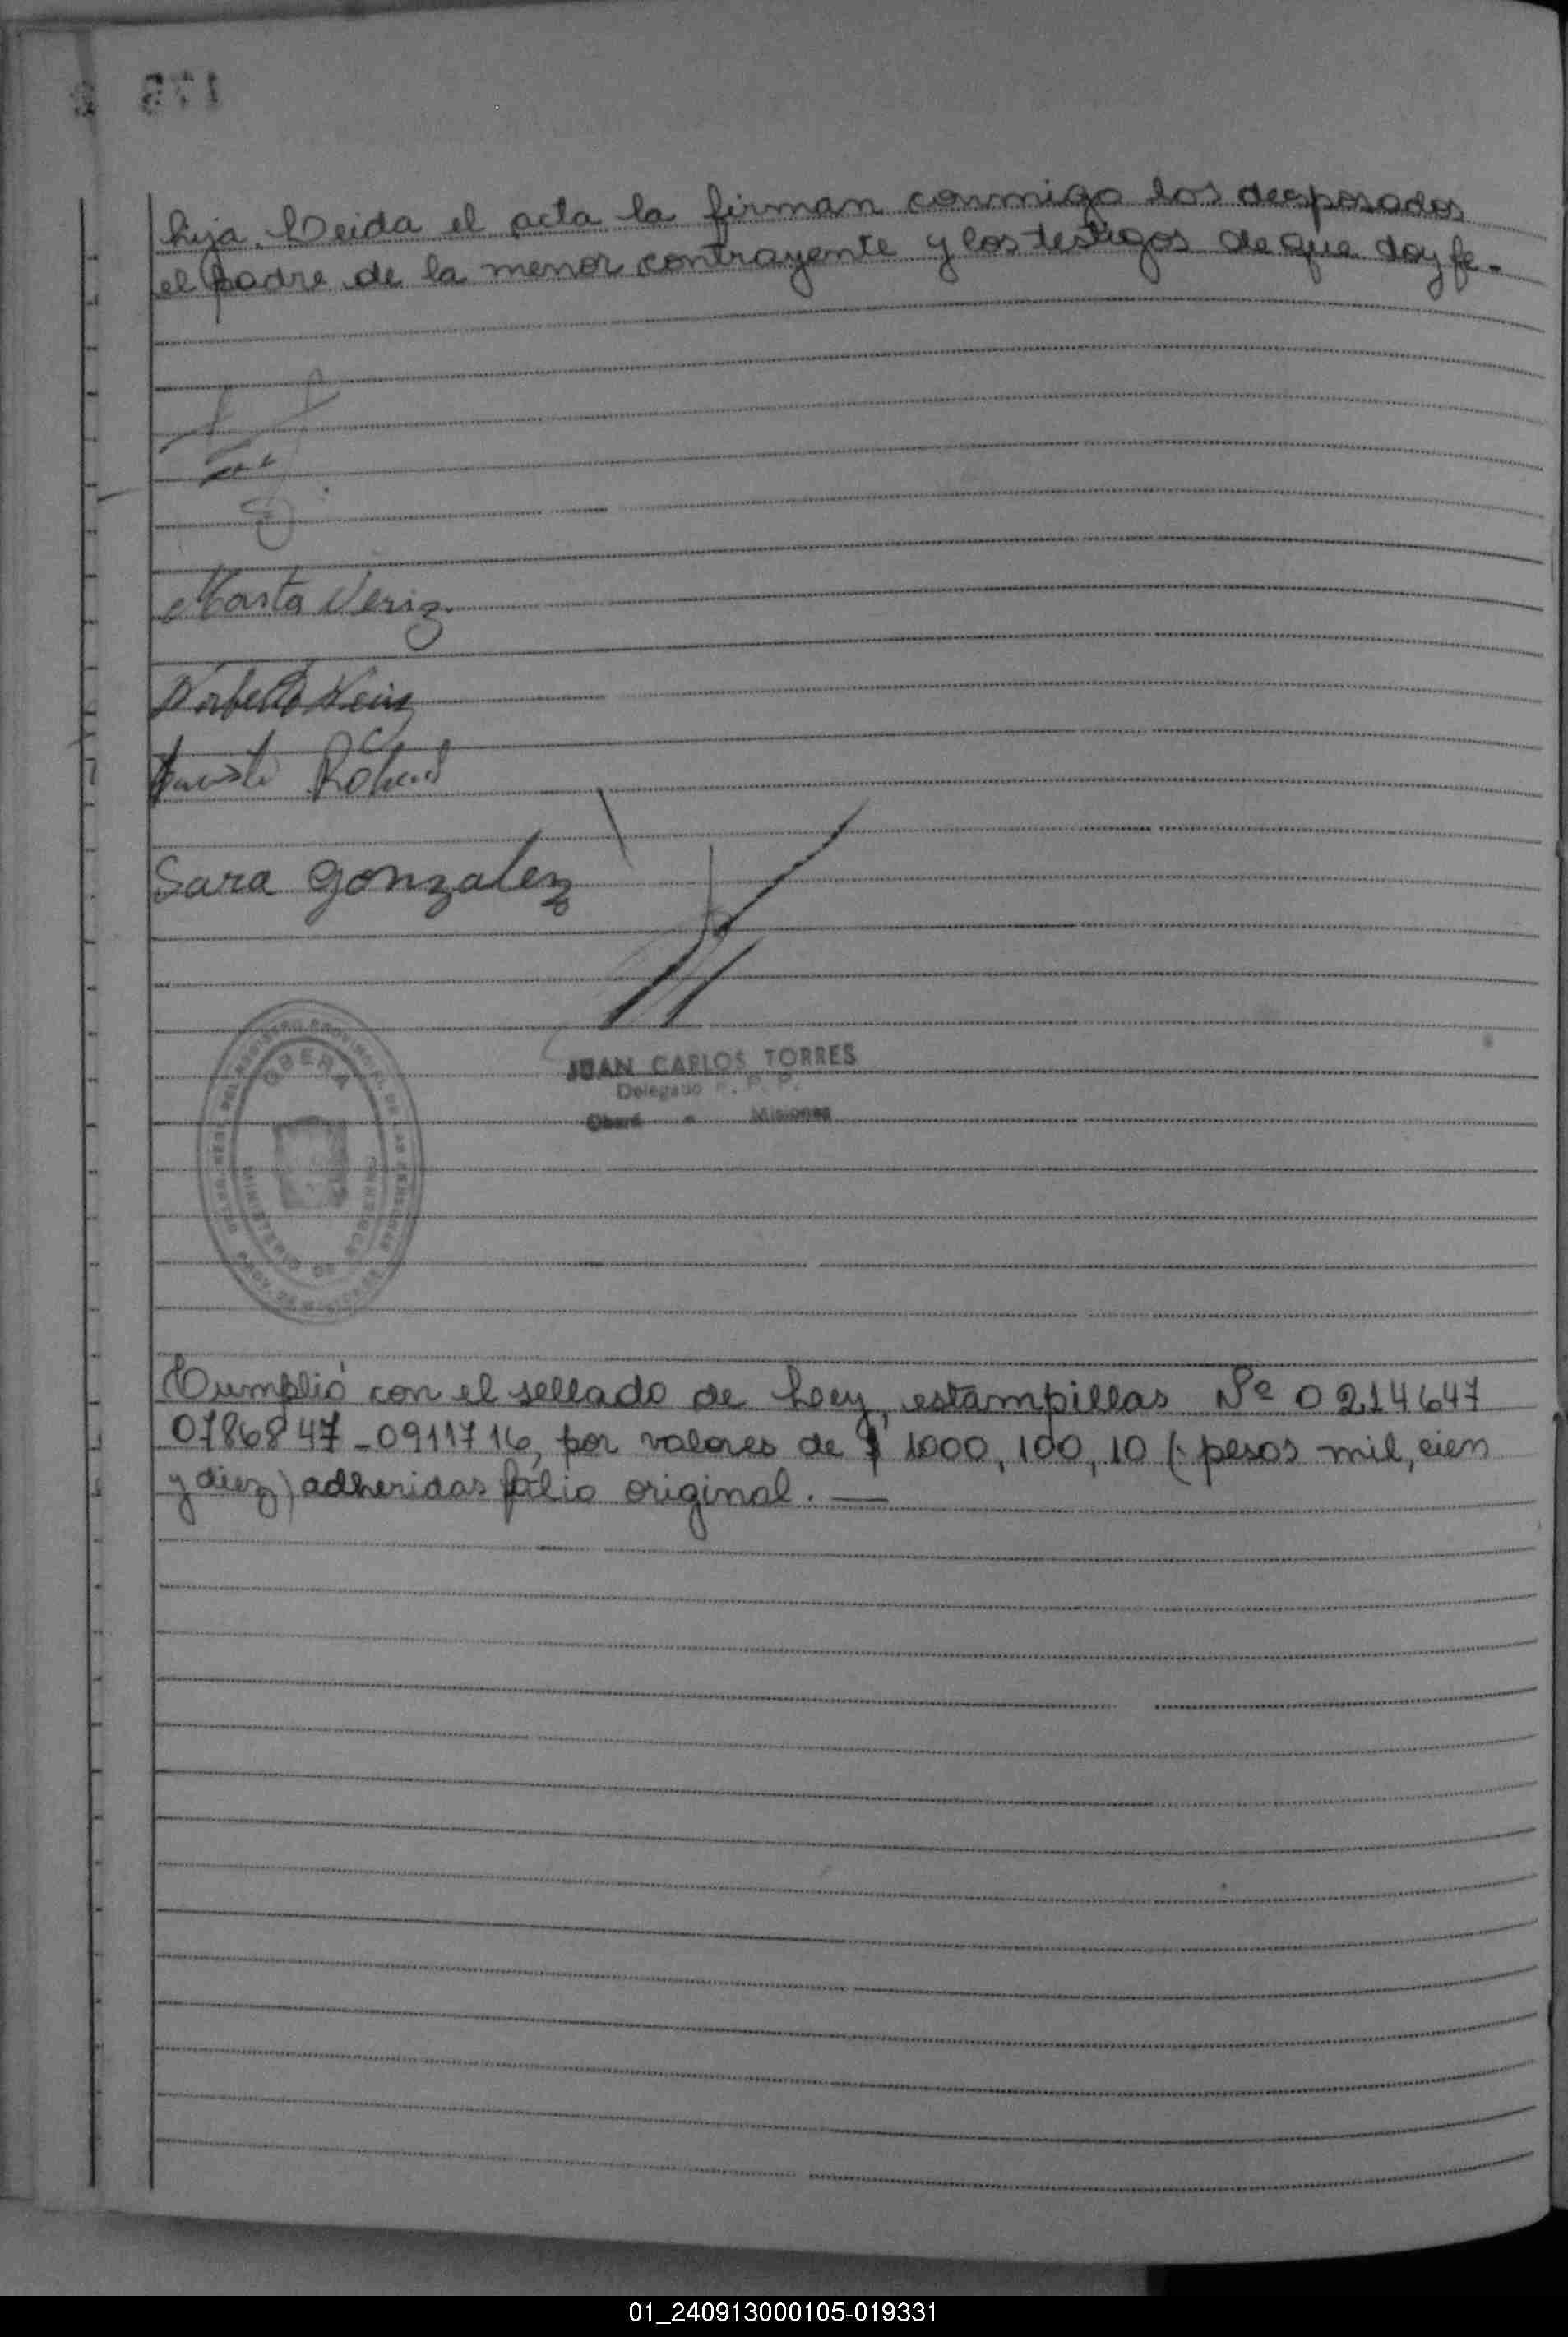 175
hija. Leida el acta la firman conmigo los desposados
el padre de la menor contrayente y los testigos de que doy fe.-
Marta Neris
Norberto Neris
Sara Gonzalez
JUAN CARLOS TORRES
Delegado R. P. P.
Oberá - Misiones
OBERA
MINISTERIO DE
Cumplió con el sellado de Ley, estampillas Nº 0214647
0786847-0911716, por valores de $ 1000, 100, 10 (pesos mil, cien
y diez) adheridas folio original. —
01_240913000105-019331